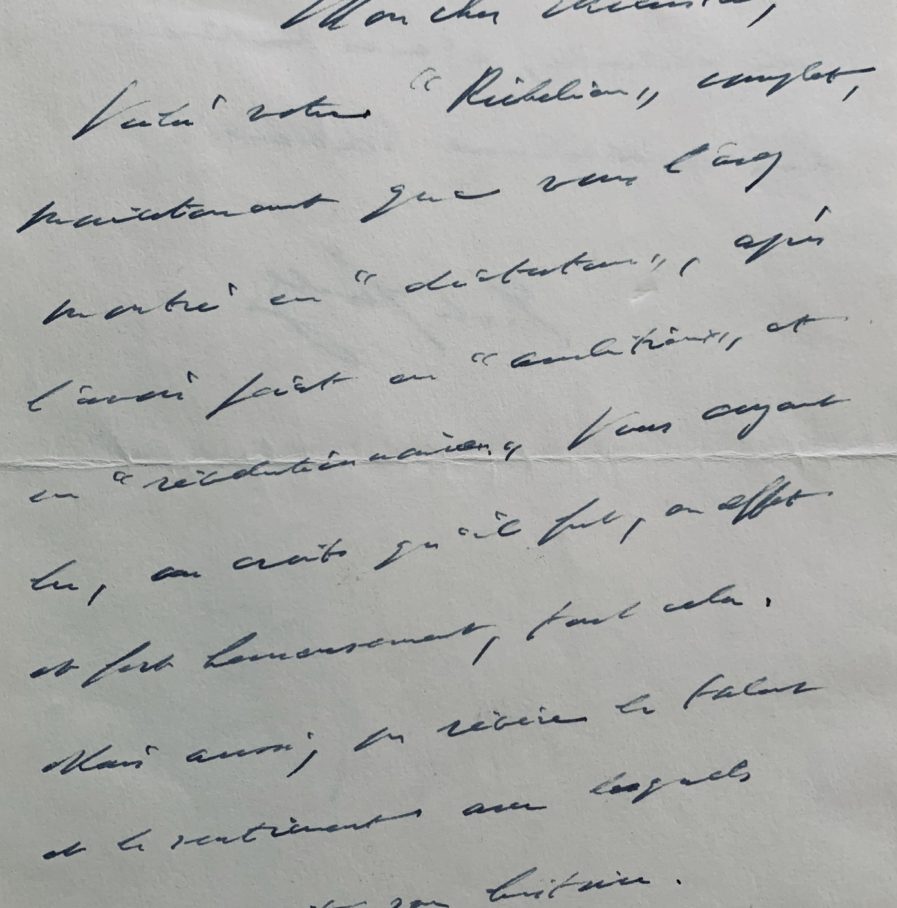 Mon cher Ministre,
Voilà votre "Richelieu" complet,
maintenant que vous l'avez
montré en "dictateur", après
l'avoir fait en "ambitieux", et
en "révolutionnaire". Vous ayant
lu, on croit qu'il fut, en effet
et fort heureusement, tout cela.
Mais aussi, on révère le talent
et le sentiment avec lesquels
son histoire.